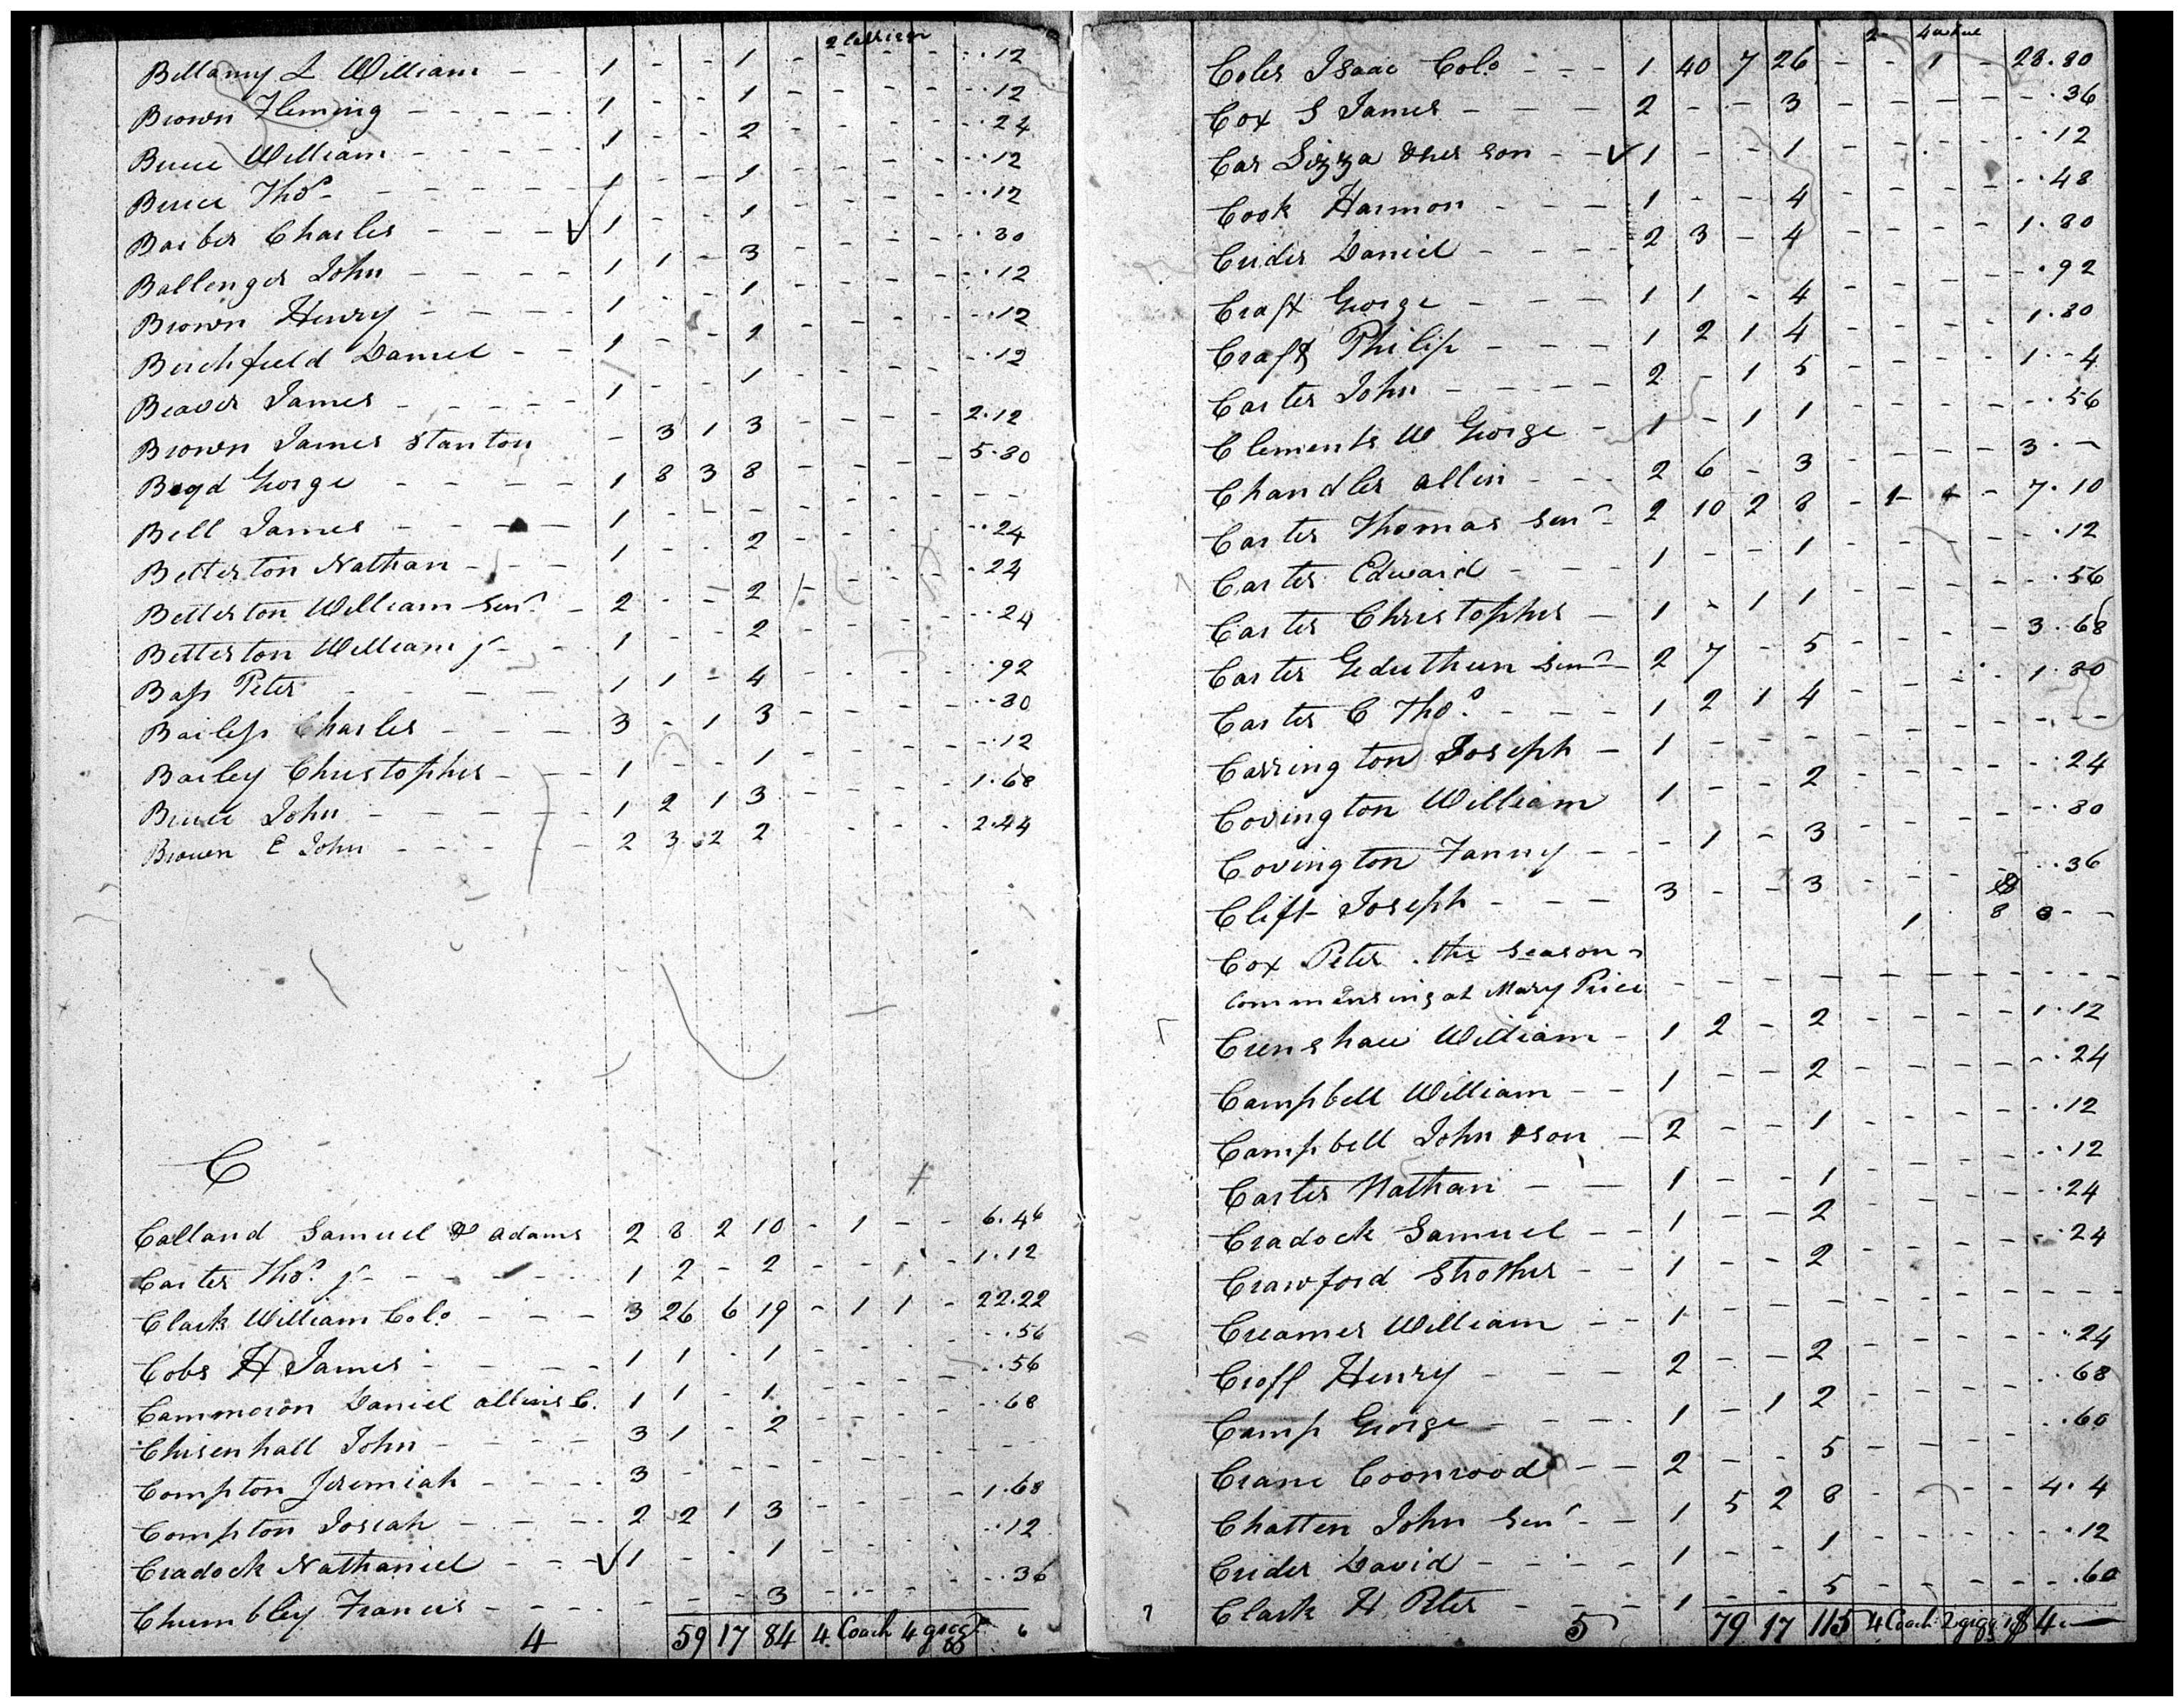 Bellamy L William - - 1 - - 1 - - - - ..12
Brown Fleming - - - - 1 - - 1 - - - - ..12
Bruce William - - - - 1 - - 2 - - - - ..24
Bruce Thos - - - - 1 - - 1 - - - - ..12
Barber Charles - - - √ 1 - - 1 - - - - ..12
Ballenger John - - - - 1 1 - 3 - - - - ..80
Brown Henry - - - - 1 - - 1 - - - - ..12
Burchfield Daniel - - 1 - - 1 - - - - ..12
Beaver James - - - - 1 - - 1 - - - - ..12
Brown James Stanton - 3 1 3 - - - - 2.12
Boyd George - - - - 1 8 3 8 - - - - 5.80
Bell James - - - - 1 - - - - - - - - -
Betterton Nathan - - - 1 - - 2 - - - - ..24
Betterton William Senr - 2 - - 2 - - - - ..24
Betterton William jr - - 1 - - 2 - - - - ..24
Bass Peter - - - - 1 1 - 4 - - - - ..92
Bailess Charles - - - 3 - 1 3 - - - - ..80
Bailey Christopher - - - 1 - - 1 - - - - ..12
Bruce John - - - - 1 2 1 3 - - - - 1.68
Brown E John - - - - 2 3 2 2 - - - - 2.44
C
Calland Samuel & Adams 2 8 2 10 - 1 - - 6.46
Carter Thos. jr - - - - 1 2 - 2 - - - - 1.12
Clark William Colo. - - - 3 26 6 19 - 1 1 - 22.22
Cobs H James - - - - 1 1 - 1 - - - - ..56
Cammeron Daniel Allins C. 1 1 - 1 - - - - ..56
Chisenhall John - - - - 3 1 - 2 - - - - ..68
Compton Jeremiah - - - - 3 - - - - - - - - -
Compton Josiah - - - - 2 2 1 3 - - - - 1.68
Cradock Nathaniel - - √ 1 - - 1 - - - - ..12
Chumbley Francis - - - - - - - 3 - - - - ..36
4 59 17 84 4 Coach 4 6
2 4
Coles Isaac Colo. - - - 1 40 7 26 - - 1 - 28.80
Cox S James - - - - 2 - - 3 - - - - ..36
Car Lizza & her son - - √ 1 - - 1 - - - - ..12
Cook Harmon - - - 1 - - 4 - - - - ..48
Crider Daniel - - - - 2 3 - 4 - - - - 1.80
Craft George - - - - 1 1 - 4 - - - - ..92
Craft Philip - - - 1 2 1 4 - - - - 1.80
Carter John - - - - 2 - 1 5 - - - - 1.-4
Clements W George - 1 - 1 1 - - - - ..56
Chandler Allin - - - 2 6 - 3 - - - - 3.-
Carter Thomas Senr - 2 10 2 8 - 1 - - 7.10
Carter Edward - - - 1 - - 1 - - - - ..12
Carter Christopher - 1 - 1 1 - - - - ..56
Carter Jeduthun Senr - 2 7 - 5 - - - - 3.68
Carter C Thos. - - - 1 2 1 4 - - - - 1.80
Carrington Joseph - 1 - - - - - - - - - -
Covington William 1 - - 2 - - - - ..24
Covington Fanny - - - 1 - 3 - - - - ..80
Clift Joseph - - - 3 - - 3 - - - - ..36
Cox Peter. the season 1 8 8 - -
Commensing at Mary Price - - - - - - - - - - -
Crenshaw William - 1 2 - 2 - - - - 1.12
Campbell William - - 1 - - 2 - - - - ..24
Campbell John & son - 2 - - 1 - - - - ..12
Carter Nathan - - 1 - - 1 - - - - ..12
Cradock Samuel - - 1 - - 2 - - - - ..24
Crawford Strother - - 1 - - 2 - - - - ..24
Creamer William - - 1 - - - - - - - - - -
Croff Henry - - - 2 - - 2 - - - - ..24
Camp George - - - - 1 - 1 2 - - - - ..68
Crane Coonrood - - 2 - - 5 - - - - ..60
Chatten John Senr - - 1 5 2 8 - - - - 4.4
Crider David - - - - 1 - - 1 - - - - ..12
Clark H Peter - - - - 1 - - 5 - - - - ..60
5 79 17 115 4 Coach 2 gigs $4.-